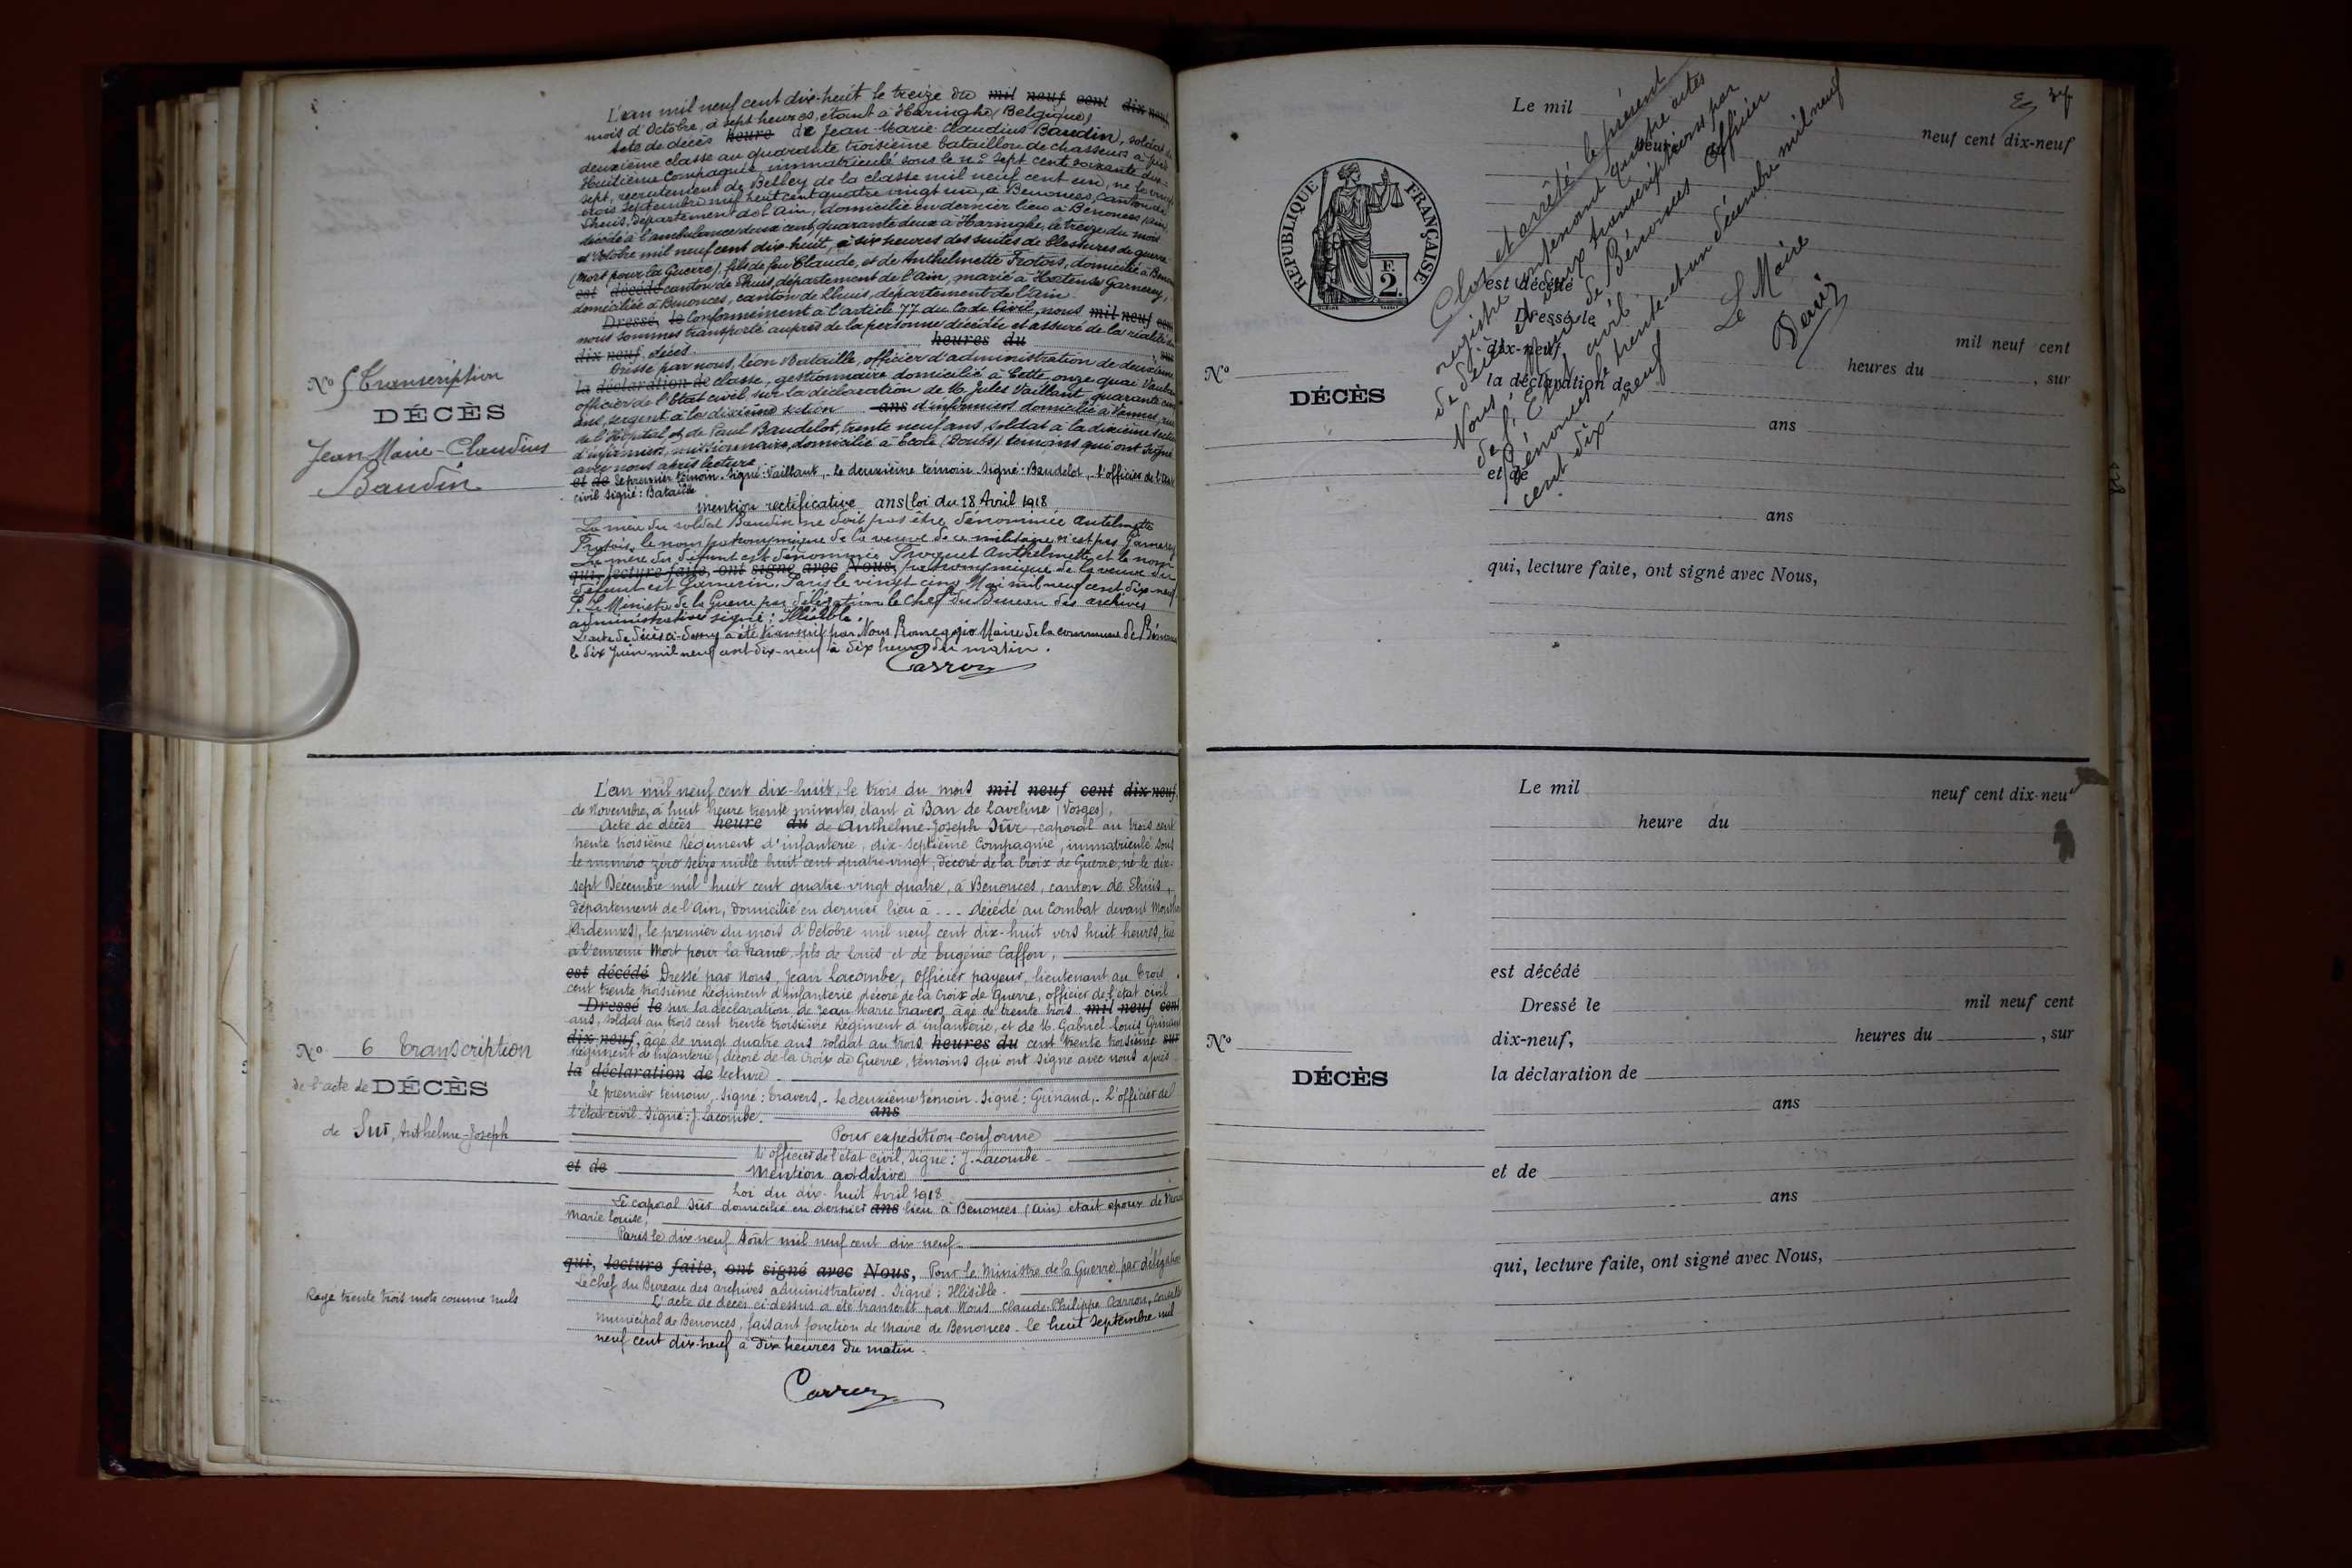 L'an mil neuf cent dix-huit le treize du mil neuf cent dix-neuf
mois d'Octobre, à sept heures, étant à Haringhe (Belgique)
Acte de décès heure de Jean-Marie Claudius Baudin, soldat de
deuxième classe au quarante troisième bataillon de chasseurs à pied
Huitième Compagnie, immatriculé sous le n° sept cent soixante dix-
sept, recrutement de Belley de la classe mil neuf cent un, né le vingt
trois Septembre mil huit cent quatre vingt un, à Benonces, canton de
Lhuis, département de l'Ain, domicilié en dernier lieu à Benonces (Ain),
décédé à l'ambulance deux cent quarante deux à Haringhe, le treize du mois
d'Octobre mil neuf cent dix-huit, à six heures des suites de blessures de guerre
(Mort pour la Guerre), fils de feu Claude, et de Anthelmette Frotois, domicilié à
est décédé canton de Lhuis, département de l'Ain, marié à Hortense Garnerey,
domiciliée à Benonces, canton de Lhuis, département de l'Ain.
Dressé, le Conformément à l'article 77 du Code Civil, nous mil neuf cent
nous sommes transporté auprès de la personne décédée et assuré de la réalité du
dix-neuf, décès. heures du , sur
Dressé par nous, Léon Bataille, officier d'administration de deuxième
la déclaration de classe, gestionnaire domicilié à Cette onze quai Vauban
officier de l'Etat civil, sur la déclaration de M. Jules Vaillant, quarante cinq
ans, sergent à la dixième section ans d'infirmiers domicilié à Vannes, rue
de l'Hôpital, et de Paul Baudelot, trente neuf ans, soldat à la dixième section
d'infirmiers, missionnaire, domicilié à Ecole (Doubs) témoins qui ont signé
avec nous après lecture
et de Le premier témoin. Signé: Vaillant, - le deuxième témoin. Signé: Baudelot, - l'officier de l'état
civil signé: Bataille
Mention rectificative ans (loi du 18 Avril 1918
La mère du soldat Baudin ne doit pas être dénommée Antelmette
Frotois, le nom patronymique de la veuve de ce militaire n'est pas Garnerey
La mère du défunt est dénommée Anthelmette et le nom
qui, lecture faite, ont signé avec Nous, patronymique de la veuve du
défunt est Garnerin. Paris le vingt cinq Mai mil neuf cent dix-neuf.
P. Le Ministre de la Guerre par délégation le Chef du Bureau des archives
administratives signé: Illisible.
L'acte de décès ci-dessus a été transcrit par Nous Maire de la commune de
le dix Juin mil neuf cent dix-neuf à dix heures du matin.
Carron
N° 5 Transcription
DÉCÈS
Jean Marie-Claudius
Baudin
L'an mil neuf cent dix-huit, le trois du mois mil neuf cent dix-neuf,
de Novembre, à huit heure trente minutes, étant à Ban de Laveline (Vosges),
Acte de décès heure du de Anthelme-Joseph Sûr, caporal au trois cent
trente troisième Régiment d'infanterie, dix-septième Compagnie, immatriculé sous
le numéro zéro seize mille huit cent quatre-vingt, décoré de la Croix de Guerre, né le dix-
sept Décembre mil huit cent quatre-vingt quatre, à Benonces, canton de Lhuis,
département de l'Ain, domicilié en dernier lieu à - - - décédé au combat devant
(Ardennes), le premier du mois d'Octobre mil neuf cent dix-huit vers huit heures, tué
à l'ennemi Mort pour la France, fils de Louis et de Eugénie Caffon,
est décédé Dressé par Nous, Jean Lacombe, officier payeur, lieutenant au trois
cent trente troisième Régiment d'infanterie décoré de la Croix de Guerre, officier de l'état civil
Dressé le sur la déclaration de Jean Marie Travers âgé de trente trois mil neuf cent
ans, soldat au trois cent trente troisième Régiment d'infanterie, et de M. Gabriel Louis Grinand
dix-neuf, âgé de vingt quatre ans soldat au trois heures du cent trente troisième sur
Régiment d'infanterie, décoré de la Croix de Guerre, témoins qui ont signé avec nous après
la déclaration de lecture.
Le premier témoin, signé: Travers, - Le deuxième témoin. Signé: Grinand, - L'officier de
l'état civil. Signé: J. Lacombe. ans
Pour expédition conforme
L'officier de l'état civil, signé: J. Lacombe -
et de Mention additive
Loi du dix-huit Avril 1918
Le caporal Sûr domicilié en dernier ans lieu à Benonces (Ain) était époux de
Marie Louise,
Paris le dix neuf Août mil neuf cent dix-neuf.
qui, lecture faite, ont signé avec Nous, Pour le Ministre de la Guerre par délégation
Le chef du Bureau des archives administratives. Signé: Illisible.
L'acte de décès ci-dessus a été transcrit par Nous Claude-Philippe Carron, conseiller
Municipal de Benonces, faisant fonction de Maire de Benonces - le huit Septembre mil
neuf cent dix-neuf à dix heures du matin.
Carron
N° 6 Transcription
de l'acte de DÉCÈS
de Sur, Anthelme-Joseph
Rayé trente trois mots comme nuls
37
Clos et arrêté le présent
registre contenant quatre actes
de décès et deux transcriptions par
Nous Maire de Bénonces Officier
de l'Etat civil
Bénonces le trente-et-un décembre mil neuf
cent dix-neuf
Le Maire
RÉPUBLIQUE FRANÇAISE
F.
2.
Le mil neuf cent dix-neuf
heure du
est décédé
Dressé le mil neuf cent
dix-neuf, heures du , sur
la déclaration de
ans
et de
ans
qui, lecture faite, ont signé avec Nous,
N°
DÉCÈS
Le mil neuf cent dix-neuf
heure du
est décédé
Dressé le mil neuf cent
dix-neuf, heures du , sur
la déclaration de
ans
et de
ans
qui, lecture faite, ont signé avec Nous,
N°
DÉCÈS